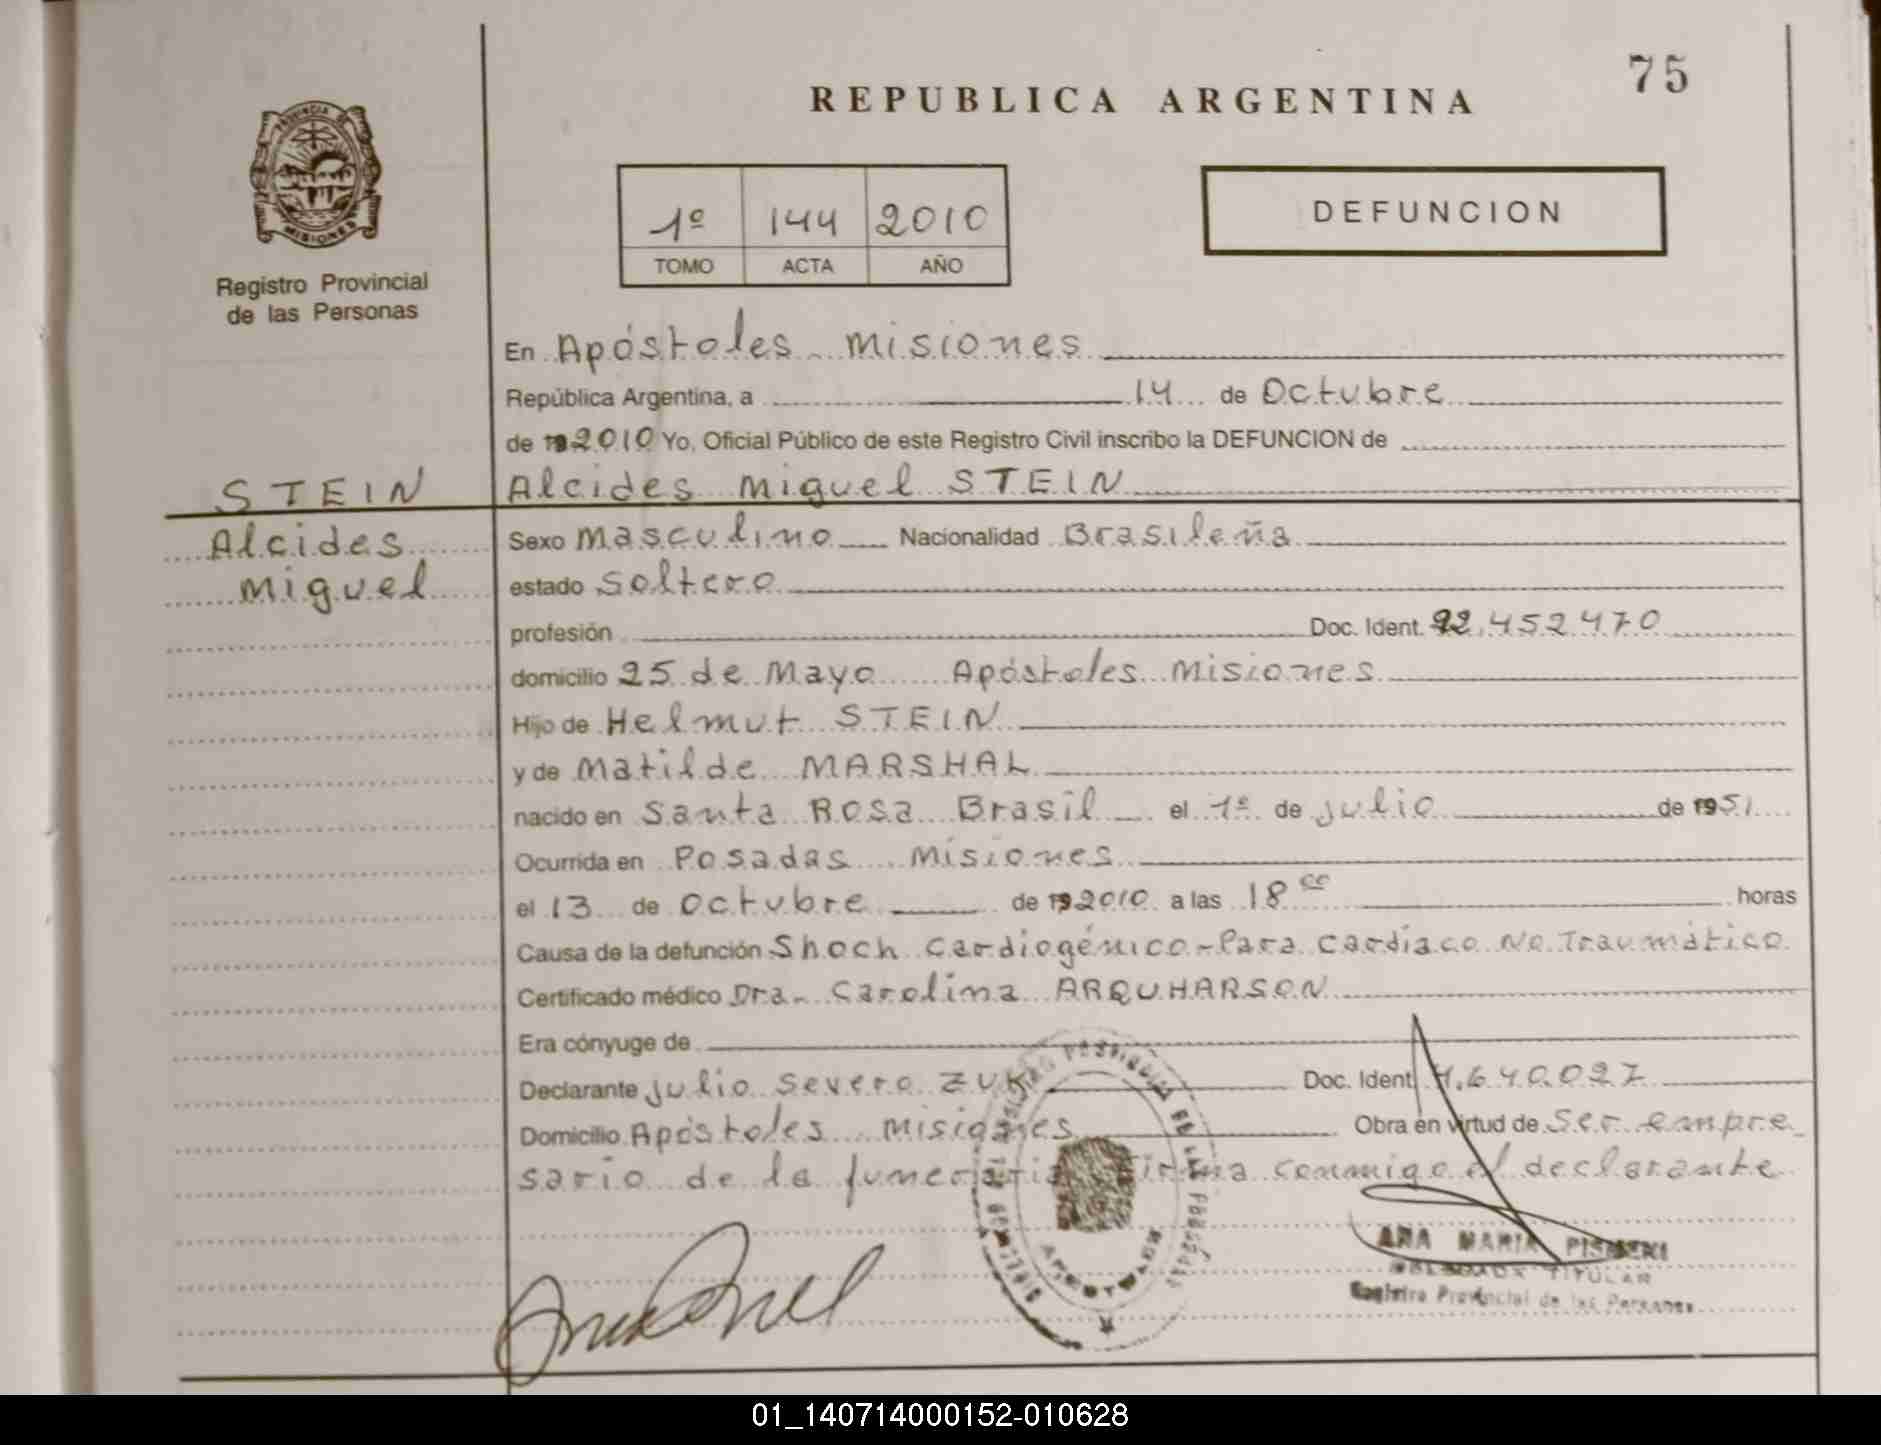 75
REPUBLICA ARGENTINA
PROVINCIA DE
MISIONES
Registro Provincial
de las Personas
1º 144 2010
TOMO ACTA AÑO
DEFUNCION
En Apóstoles Misiones
República Argentina, a 14 de Octubre
de 19 2010 Yo, Oficial Público de este Registro Civil inscribo la DEFUNCION de
STEIN
Alcides Miguel STEIN
Alcides
Miguel
Sexo Masculino Nacionalidad Brasileña
estado Soltero
profesión Doc. Ident. 92.452470
domicilio 25 de Mayo Apóstoles Misiones
Hijo de Helmut STEIN
y de Matilde MARSHAL
nacido en Santa Rosa Brasil el 1º de julio de 1951
Ocurrida en Posadas Misiones
el 13 de octubre de 19 2010 a las 18 00 horas
Causa de la defunción Shoch Cardiogénico - Para Cardíaco No Traumático
Certificado médico Dra. Carolina ARQUHARSON
Era cónyuge de
Declarante julio Severo ZUK Doc. Ident. 640.027
Domicilio Apóstoles Misiones Obra en virtud de Ser empre
sario de la funeraria Firma conmigo el declarante
ANA MARIA
TITULAR
Registro Provincial de las Personas
01_140714000152-010628